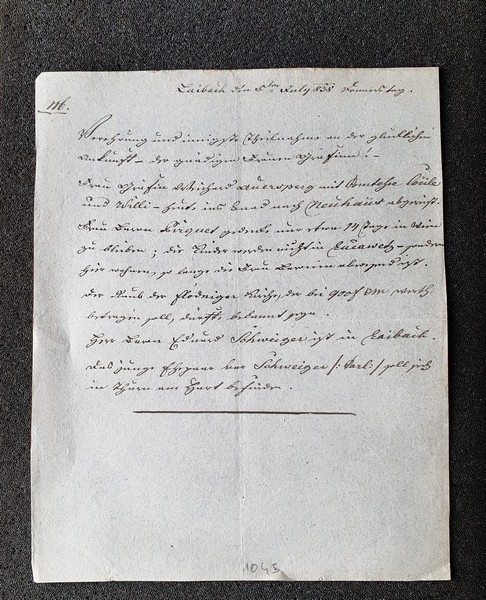 Laibach den 5ten July 838 Donnerstag.
116.
Verehrung und innigste Theilnahme an der glücklichen
Ankunft – der gnädigen Frauen Gräfinn! –
Frau Gräfin Weichard Auersperg mit Comtesse Cécile
und Willi – heute ins Baad nach Neuhaus abgereist.
Frau Baron Pirquet gedenkt nur etwa 14 Tage in Wien
zu bleiben; die Kinder werden nicht in – sondern
hier wohnen, so lange die Frau Baronin abwesend ist.
Der Raub der Flödniger Kirche, der bei 900 f CM werth
betragen soll, dürfte bekannt seyn.
Herr Baron Eduard Schweiger ist in Laibach.
Das junge Ehepaar Schweiger /: Carl :/ soll sich
in Thurn am Hart befinden.
1045